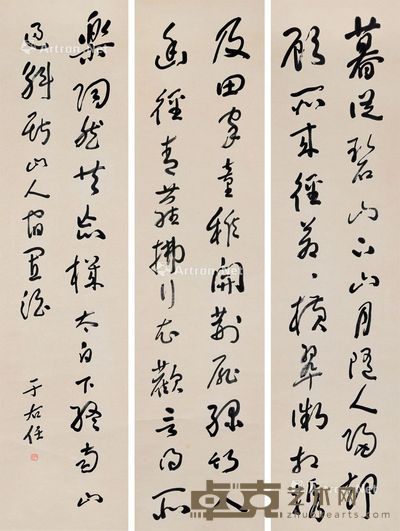 暮從碧山下山月隨人歸却
顧所來徑蒼〻橫翠微相攜
及田家童稚開荊扉綠竹入
幽徑青蘿拂行衣歡言得所
樂陶然共忘機太白下終南山
過斛斯山人宿置酒
于右任
ArtronNet
卓克艺术网
zhuokearts.com